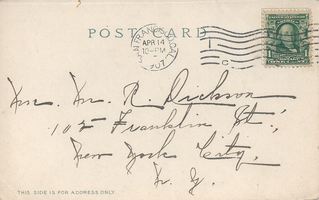 POST CARD
SAN FRANCISCO, CAL.
APR 14
10-PM
1907
C
R. Dickson
102 Franklin St.,
New York City,
N.Y.
THIS SIDE IS FOR ADDRESS ONLY.